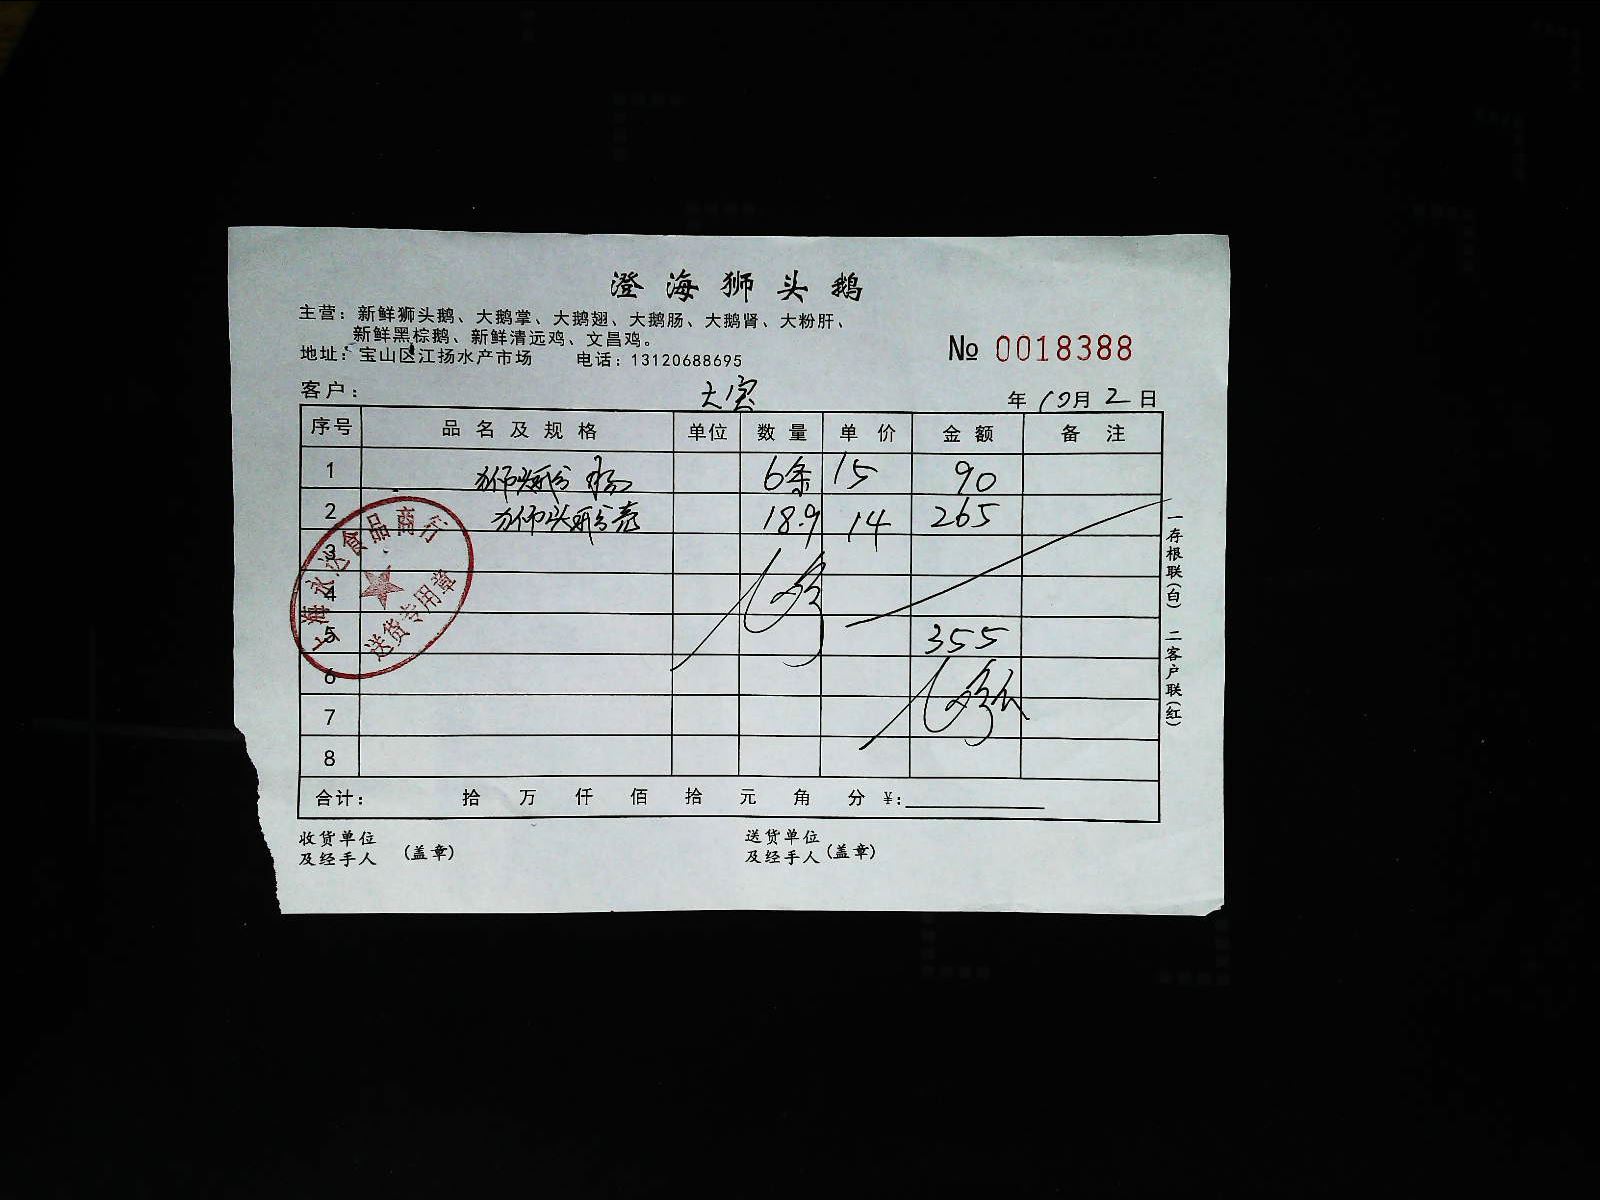 澄海狮头鹅
主营：新鲜狮头鹅、大鹅掌、大鹅翅、大鹅肠、大鹅肾、大粉肝、
新鲜黑棕鹅、新鲜清远鸡、文昌鸡。
地址：宝山区江扬水产市场 电话：13120688695
№ 0018388
客户： 大宝 年 10月 2 日
序号 品名及规格 单位 数量 单价 金额 备注
1 狮头鹅 肠 6条 15 90
2 狮头鹅 18.9 14 265
3
4
5 355
6
7
8
合计： 拾 万 仟 佰 拾 元 角 分 ¥:
收货单位
及经手人 (盖章)
送货单位
及经手人 (盖章)
一存根联(白) 二客户联(红)
上海永达食品商行
送货专用章